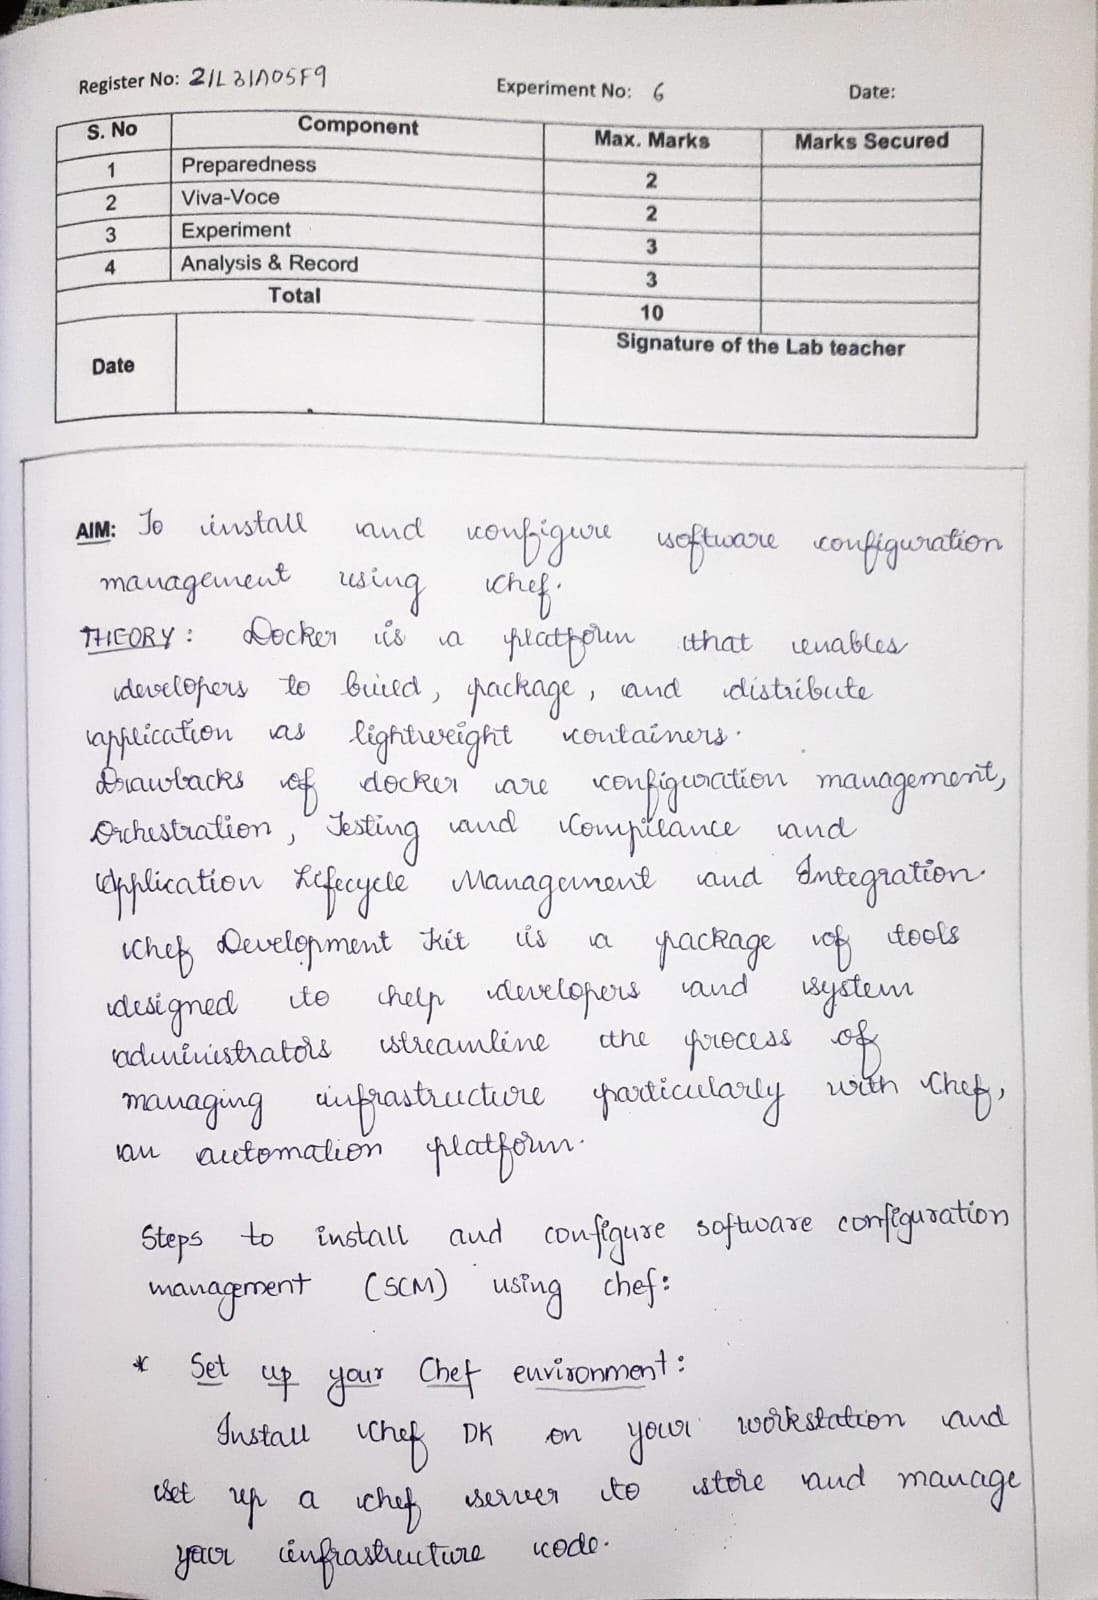 Register No: 21L31A05F9 Experiment No: 6 Date:
S. No Component Max. Marks Marks Secured
1 Preparedness 2
2 Viva-Voce 2
3 Experiment 3
4 Analysis & Record 3
Total 10
Date Signature of the Lab teacher
AIM: To install and configure software configuration
management using chef.
THEORY: Docker is a platform that enables
developers to build, package, and distribute
application as lightweight containers.
Drawbacks of docker are configuration management,
Orchestration, Testing and Compilance and
Application Lifecycle Management and Integration.
Chef Development Kit is a package of tools
designed to help developers and system
administrators streamline the process of
managing infrastructure particularly with Chef,
an automation platform.
Steps to install and configure software configuration
management (SCM) using chef:
* Set up your Chef environment:
Install Chef DK on your workstation and
set up a chef server to store and manage
your infrastructure code.